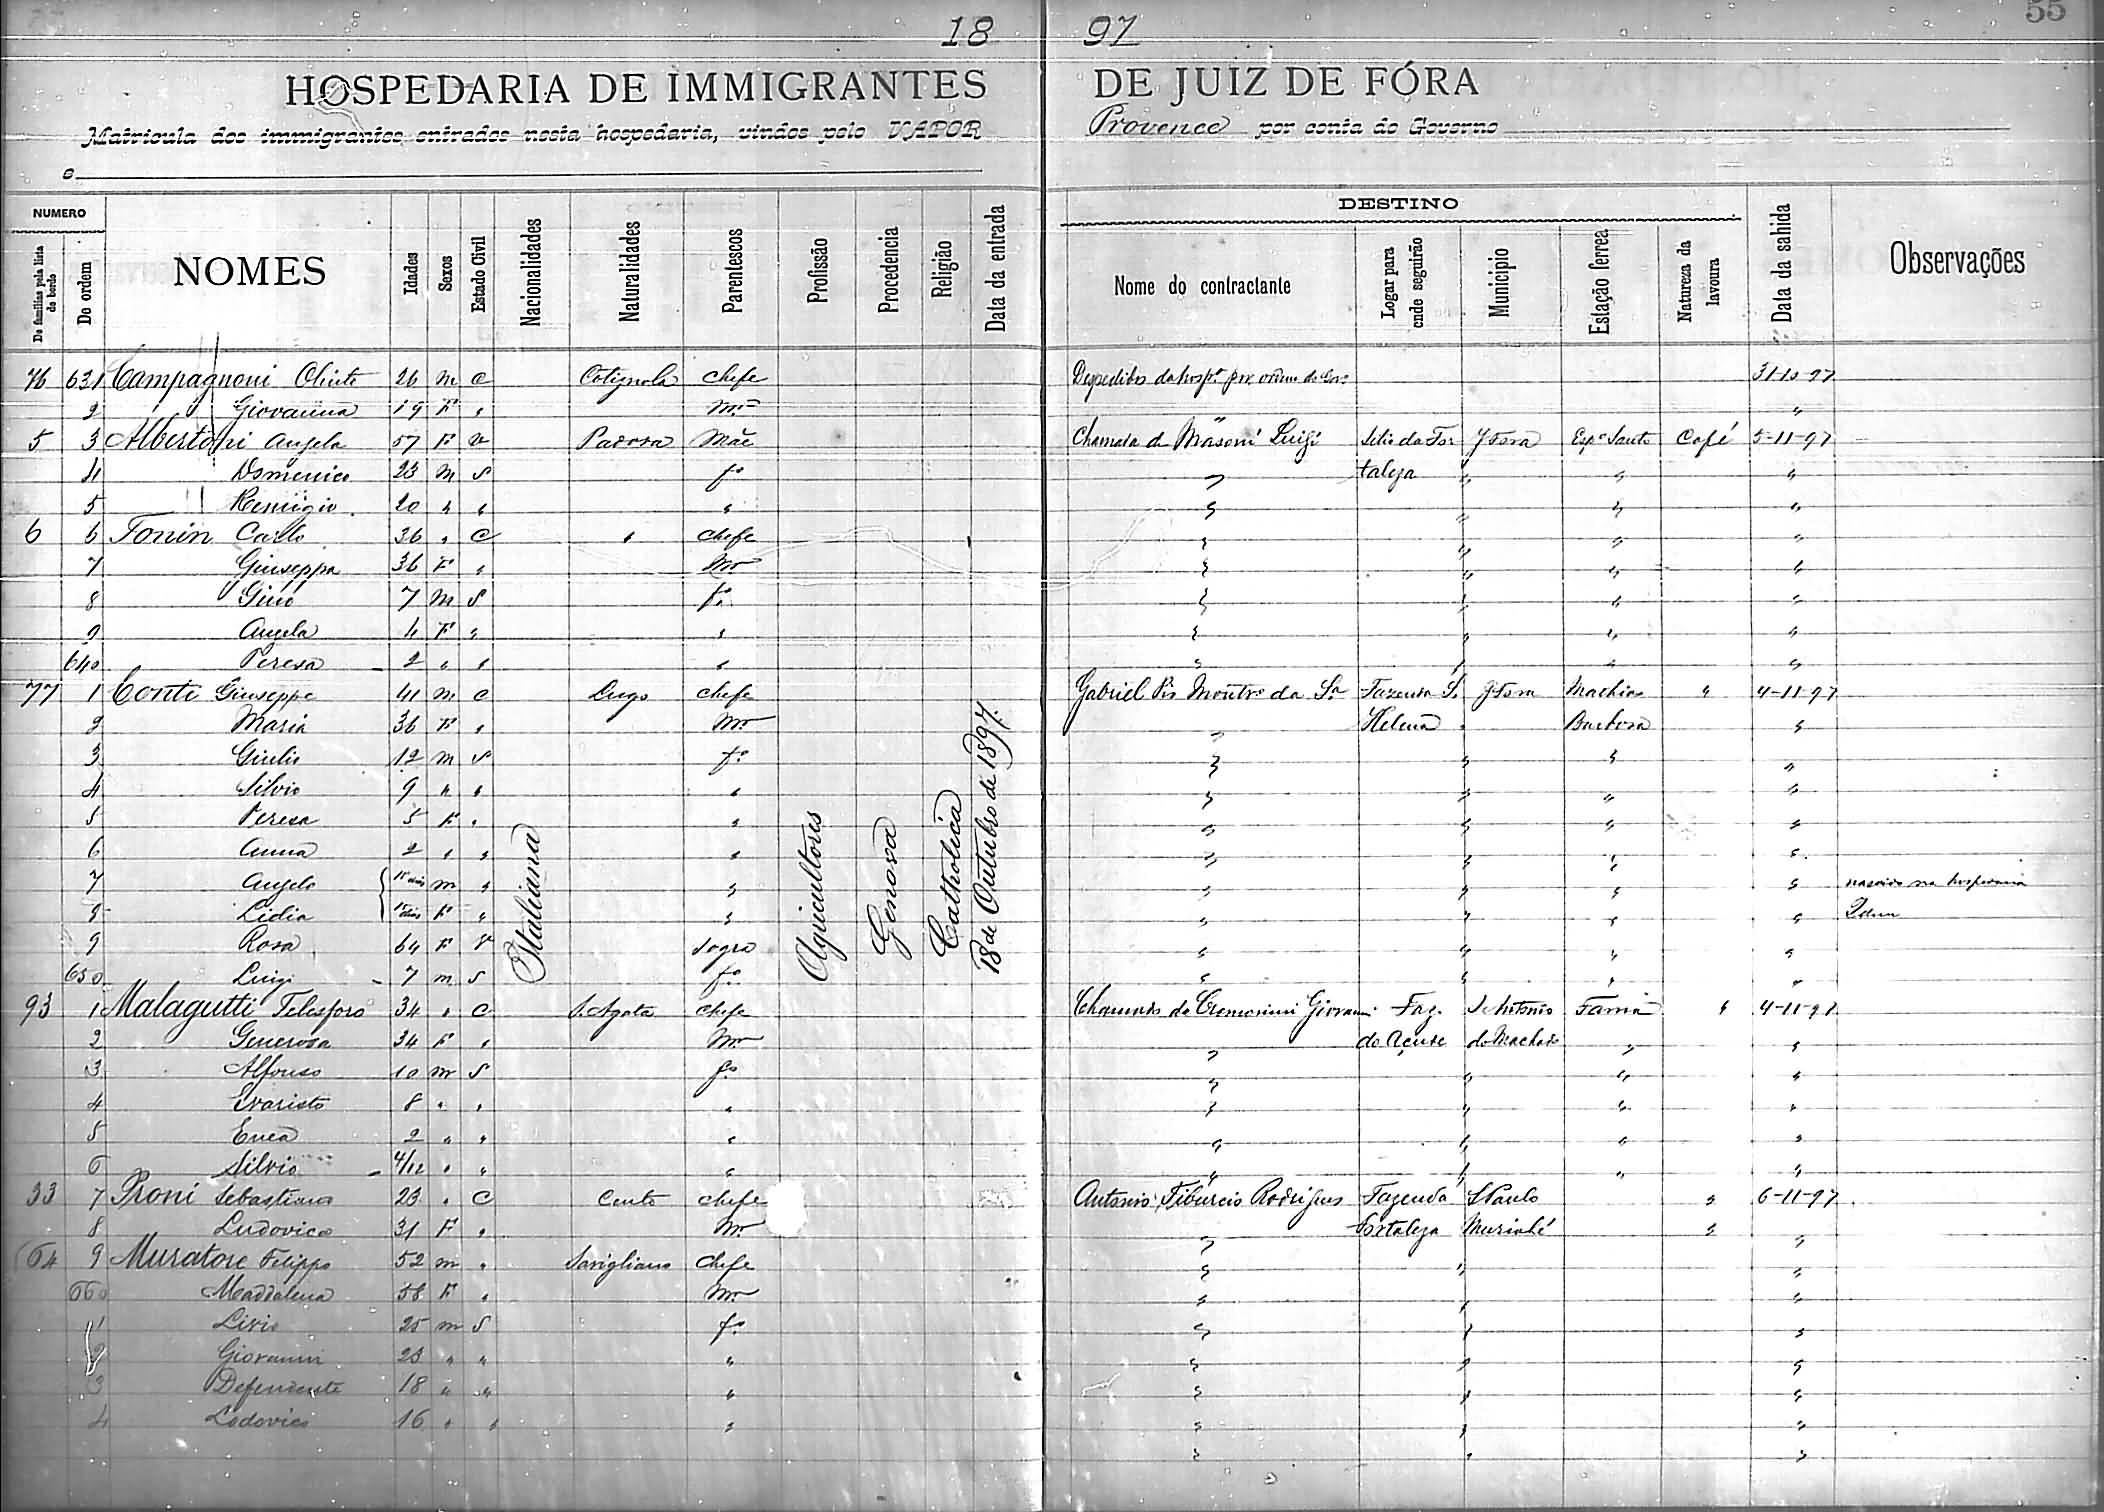 55
18 97
HOSPEDARIA DE IMMIGRANTES DE JUIZ DE FÓRA
Matricula dos immigrantes entrados nesta hospedaria, vindos pelo VAPOR Provence por conta do Governo
e
NUMERO
De familias pela lista de bordo
De ordem
NOMES
Idades
Sexos
Estado Civil
Nacionalidades
Naturalidades
Parentescos
Profissão
Procedencia
Religião
Data da entrada
DESTINO
Nome do contractante
Logar para onde seguirão
Municipio
Estação ferrea
Natureza da lavoura
Data da sahida
Observações
76 631 Campagnoni Olinto 26 m c Cotignola chefe Despedidos da hospª por ordem do Govº 31-10-97
2 Giovanna 19 F " mer "
5 3 Albertoni Angela 57 F v Padova Mãe Chamada de Masoni Luigi Sitio da For JFora Espº Santo Café 5-11-97
4 Domenico 23 m S fº " taleza " " "
5 Remigio 20 " " " " " " "
6 6 Tonin Carlo 36 " c " chefe " " " "
7 Giuseppa 36 F " mer " " " "
8 Gino 7 m S fº " " " "
9 Angela 4 F " " " " " "
640 Teresa 2 " " " " " " "
77 1 Conti Giuseppe 41 m c Lugo chefe Gabriel Pio Montrº da Sª Fazenda S. JFora Mathias " 4-11-97
2 Maria 36 F " mer " Helena " Barbosa "
3 Giulio 12 m S fº " " " "
4 Silvio 9 " " " " " " "
5 Teresa 5 F " " " " " "
6 Anna 2 " " " " " " "
7 Angelo 15 dias m " " " " " " nascido na hospedaria
8 Lidia 15 dias F " " " " " " Idem
9 Rosa 64 F V sogra " " " "
650 Luigi 7 m S fº " " " "
Italiana
Agricultores
Genova
Catholica
18 de Outubro de 1897.
93 1 Malagutti Telesforo 34 " c S. Agata chefe Chamado de Cremonini Giovanni Faz. S Antonio Fama " 4-11-97
2 Generosa 34 F " mer " do Açude do Machado " "
3 Alfonso 10 m S fº " " " "
4 Evaristo 8 " " " " " " "
5 Enea 2 " " " " " " "
6 Silvio 4/12 " " " " " " "
33 7 Proni Sebastiano 23 " c Cento chefe Antonio Tiburcio Rodrigues Fazenda S Paulo " 6-11-97
8 Ludovica 31 F " mer " Fortaleza Muriahé " "
64 9 Muratore Filippo 52 m " Savigliano chefe " " "
660 Maddalena 58 F " mer " " "
1 Livio 25 m S fº " " "
2 Giovanni 23 " " " " " "
3 Defendente 18 " " " " " "
4 Lodovico 16 " " " " " "
" " "